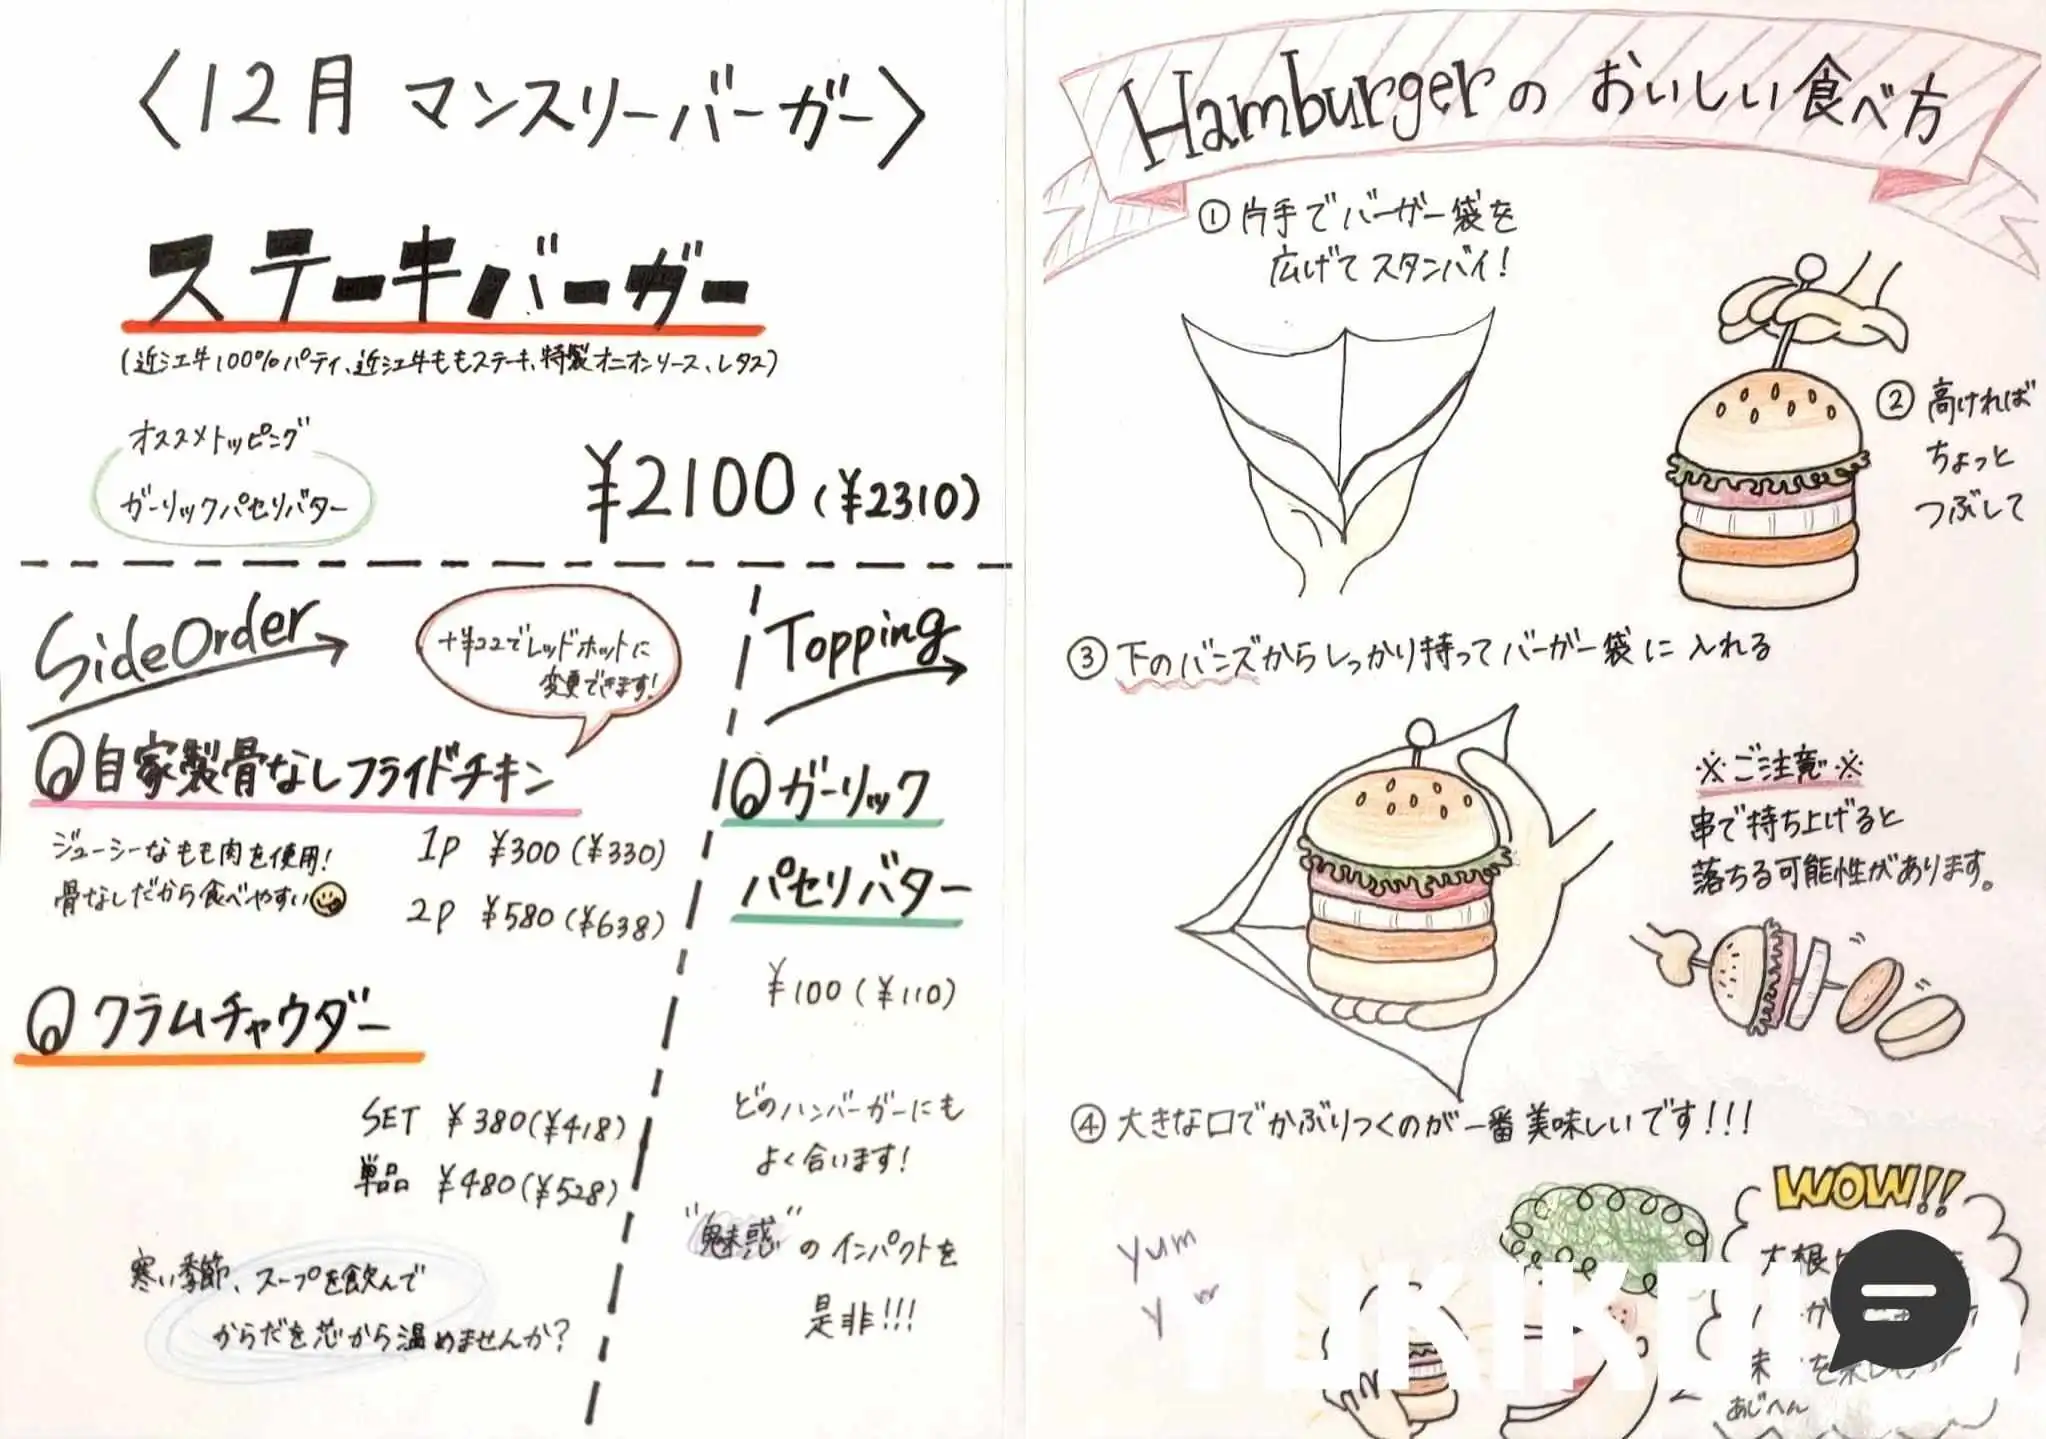 〈12月 マンスリーバーガー〉
ステーキバーガー
(近江牛100%パティ、近江牛ももステーキ、特製オニオンソース、レタス)
オススメトッピング
ガーリックパセリバター
¥2100(¥2310)
Side Order
+¥22でレッドホットに
変更できます!
自家製骨なしフライドチキン
ジューシーなもも肉を使用!
骨なしだから食べやすい
1P ¥300(¥330)
2P ¥580(¥638)
クラムチャウダー
SET ¥380(¥418)
単品 ¥480(¥528)
寒い季節、スープを飲んで
からだを芯から温めませんか?
Topping
ガーリック
パセリバター
¥100(¥110)
どのハンバーガーにも
よく合います!
"魅惑"のインパクトを
是非!!!
Hamburgerの おいしい食べ方
①片手でバーガー袋を
広げてスタンバイ!
②高ければ
ちょっと
つぶして
③下のバンズからしっかり持ってバーガー袋に入れる
※ご注意※
串で持ち上げると
落ちる可能性があります。
④大きな口でかぶりつくのが一番美味しいです!!!
yum
WOW!!
あじへん
YUKIKO